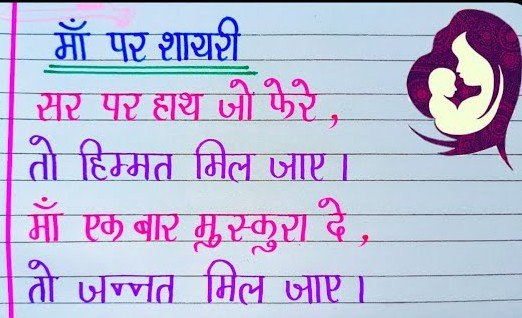 माँ पर शायरी
सर पर हाथ जो फेरे,
तो हिम्मत मिल जाए।
माँ एक बार मुस्कुरा दे,
तो जन्नत मिल जाए।